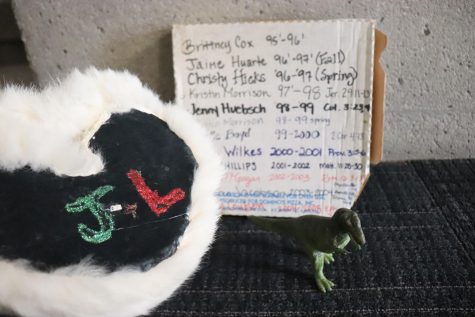 Brittney Cox 95'-96'
Jaine Huarte 96'-97' (Fall)
Christy Hicks '96-'97 (Spring)
Kristin Morrison 97'-98 Jer. 29:11-13
Jenny Huebsch 98-99 Col. 3:23,24
Morrison 98-99 spring
Boyd 99-2000 2 Cor
Wilkes 2000-2001 Prov. 3:5-6
PHILLIPS 2001-2002
Morgan 2002-2003
DOMINO'S PIZZA, INC.
J-L